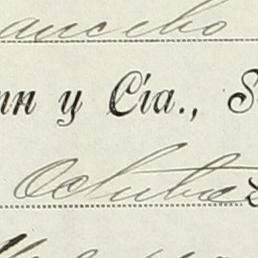 ancebo
nn y Cía., S
Octubre